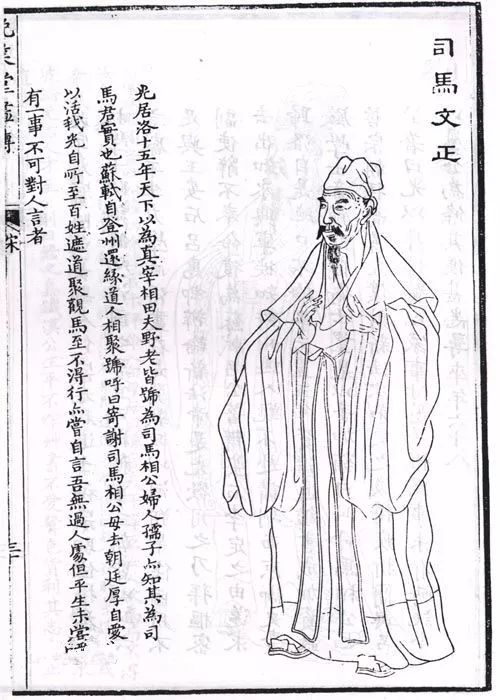 司馬文正
光居洛十五年天下以為真宰相田夫野老皆號為司馬相公婦人孺子亦知其為司
馬君實也蘇軾自登州還緣道人相聚號呼曰寄謝司馬相公毋去朝廷厚自愛
以活我光自所至百姓遮道聚觀馬至不得行亦嘗自言吾無過人處但平生未嘗
有一事不可對人言者
堂畫傳
宋
三十